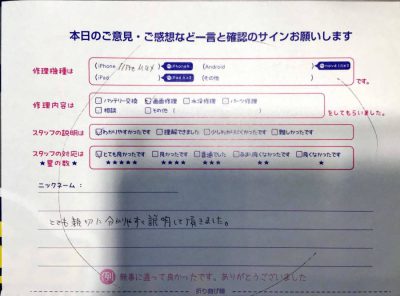 本日のご意見・ご感想など一言と確認のサインお願いします
修理機種は
(iPhone 11 Pro Max ) iPhone4 (Android )
(iPad ) (その他 ) です。
修理内容は
バッテリー交換 画面修理 水没修理 パーツ修理
相談 その他 ( ) をしてもらいました。
スタッフの説明は わかりやすかったです 理解できました 少しわかりにくかったです 難しかったです
スタッフの対応は とても良かったです 良かったです 普通でした あまり良くなかったです 良くなかったです
★星の数★ ★★★★★ ★★★★ ★★★ ★★ ★
ニックネーム：
とても親切に分かりやすく説明して頂きました。
無事に直って良かったです。ありがとうございました
折り曲げ線